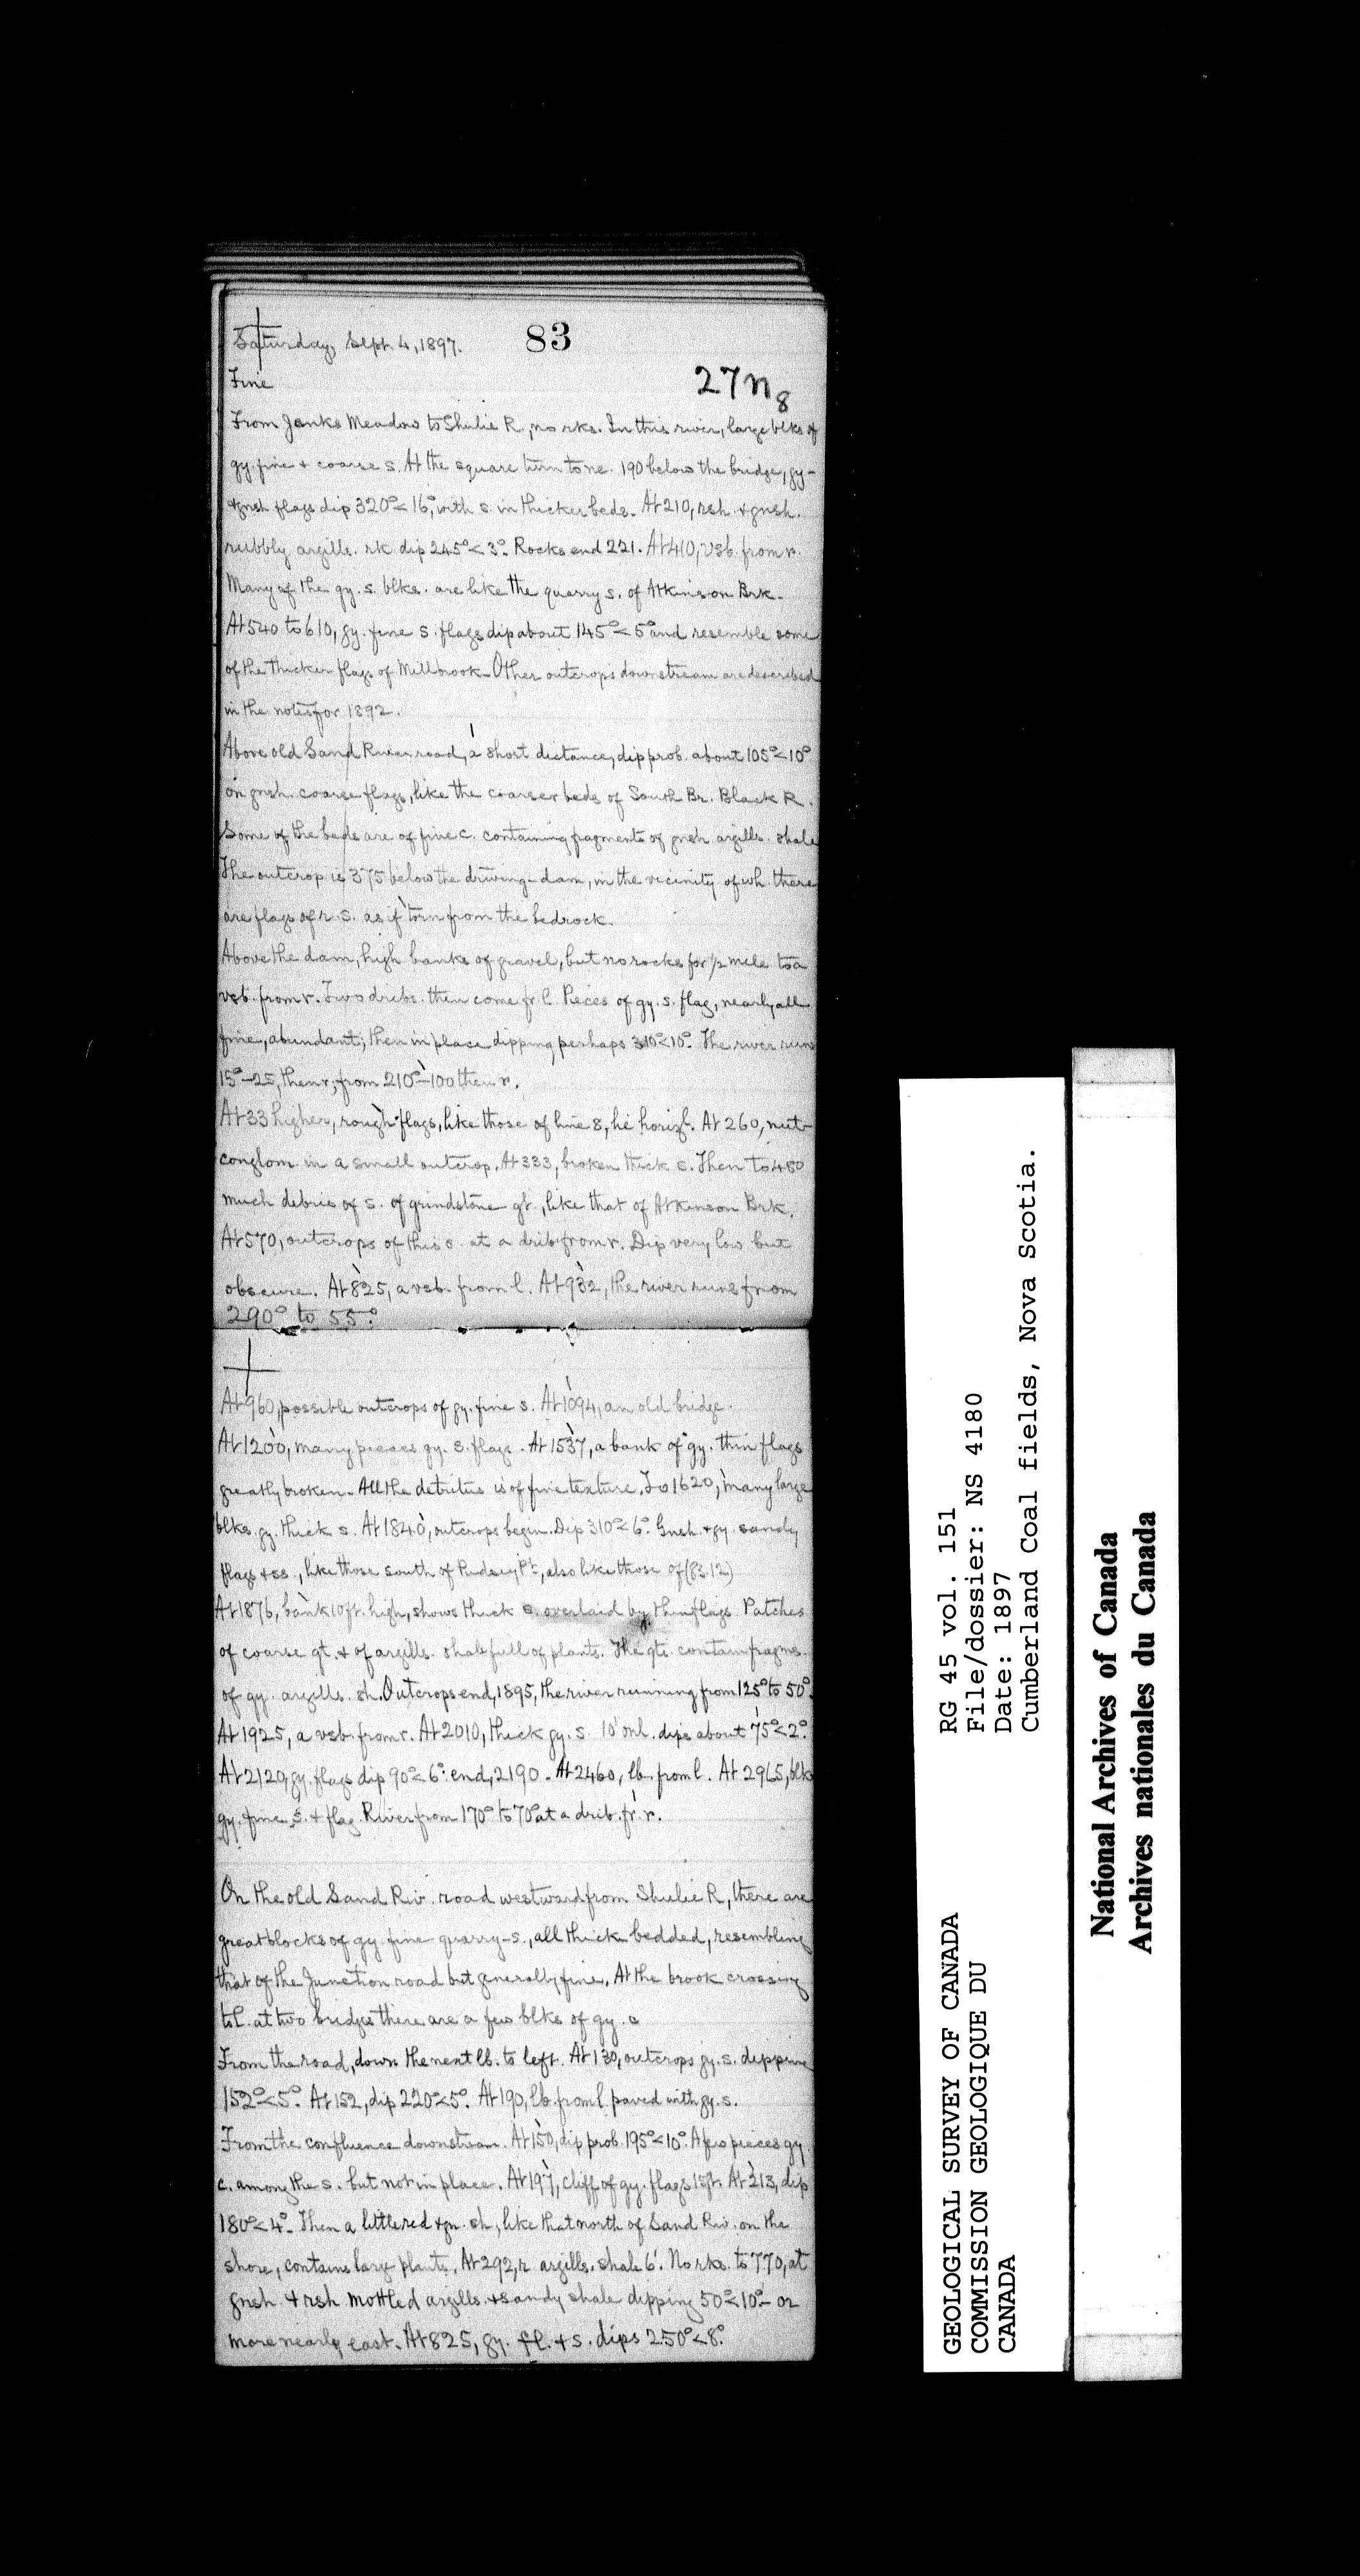 Saturday, Sept. 4, 1897.
83
Fine
27n8
From Jenks Meadow to Shulie R., no rks. In this river, large blks of
gy. fine + coarse s. At the square turn to ne. 190 below the bridge, gy-
+ gnsh flags dip 320°<16°, with s. in thicker beds. At 210, rsh. + gnsh.
rubbly argills. rk dip 245°<3°. Rocks end 221. At 410, vsb. from r.
Many of the gy. s. blks. are like the quarry s. of Atkinson Brk.
At 540 to 610, gy. fine s. flags dip about 145°<5° and resemble some
of the thicker flags of Millbrook. Other outcrops downstream are described
in the notes for 1892.
Above old Sand River road, a short distance, dip prob. about 105°<10°
on gnsh. coarse flags, like the coarser beds of South Br. Black R.
Some of the beds are of fine c. containing fragments of gnsh argills. shale
The outcrop is 375 below the driving-dam, in the vicinity of wh. there
are flags of r. s. as if torn from the bedrock.
Above the dam, high banks of gravel, but no rocks for 1/2 mile to a
vsb. from r. Two dribs. then come fr. l. Pieces of gy. s. flag, nearly all
fine, abundant; then in place dipping perhaps 310°<10°. The river runs
15°-25, then r, from 210°-100 then r.
At 33 higher, rough flags, like those of line 8, lie horizl. At 260, nut-
conglom in a small outcrop. At 333, broken thick s. Then to 480
much debris of s. of grindstone gt., like that of Atkinson Brk.
At 570, outcrops of this s. at a drib from r. Dip very low but
obscure. At 825, a vsb. from l. At 932, the river runs from
290° to 55°.
At 960, possible outcrops of gy. fine s. At 1094, an old bridge.
At 1200, many pieces gy. s. flags. At 1537, a bank of gy. thin flags
greatly broken. All the detritus is of fine texture. To 1620, many large
blks. gy. thick s. At 1840, outcrops begin. Dip 310°<6°. Gnsh. + gy. sandy
flags + ss., like those south of Pudsey Pt., also like those of (83.12)
At 1876, bank 10 ft. high, shows thick s. overlaid by thin flags. Patches
of coarse gt. + of argills. shale full of plants. The gts. contain fragms.
of gy. argills. sh. Outcrops end, 1895, the river running from 125° to 50°.
At 1925, a vsb. from r. At 2010, thick gy. s. 10' on l. dips about 75°<2°.
At 2120, gy. flags dip 90°<6°: end, 2190. At 2460, lb. from l. At 2965, blks
gy. fine s. + flag. River from 170° to 70° at a drib. fr. r.
On the old Sand Riv. road westward from Shulie R., there are
great blocks of gy. fine quarry-s., all thick bedded, resembling
that of the Junction road but generally fine. At the brook crossing
to l. at two bridges there are a few blks of gy. c
From the road, down the next lb. to left. At 130, outcrops gy. s. dipping
152°<5°. At 152, dip 220°<5°. At 190, lb. from l. paved with gy. s.
From the confluence downstream. At 150, dip prob. 195°<10°. A few pieces gy.
c. among the s. but not in place. At 197, cliff of gy. flags 15 ft. At 213, dip
180°<4°. Then a little red + gn. sh, like that north of Sand Riv. on the
shore, contains large plants. At 292, r argills. shale 6'. No rks. to 770, at
gnsh. + rsh mottled argills. + sandy shale dipping 50°<10° - or
more nearly east. At 825, gy. fl. + s. dips 250°<8°.
GEOLOGICAL SURVEY OF CANADA
COMMISSION GEOLOGIQUE DU
CANADA
RG 45 vol. 151
File/dossier: NS 4180
Date: 1897
Cumberland Coal fields, Nova Scotia.
National Archives of Canada
Archives nationales du Canada